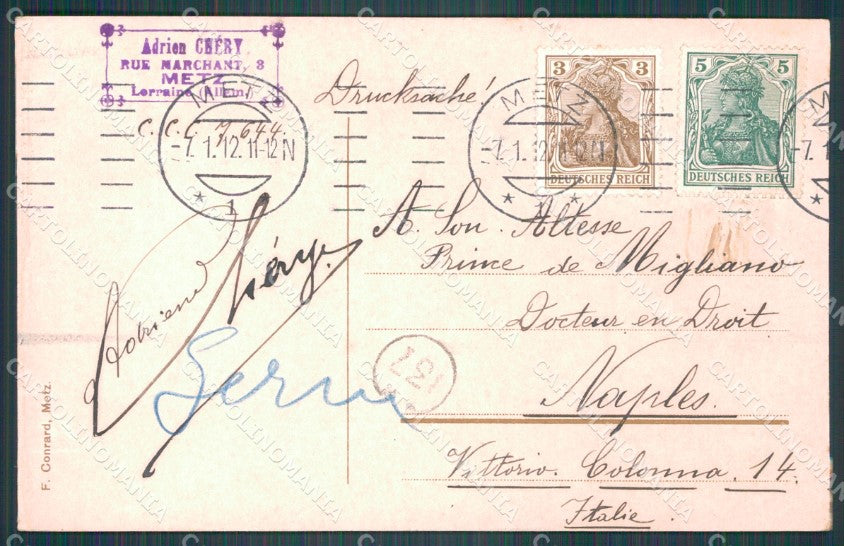 Adrien CHÉRY
RUE MARCHANT, 3
METZ
Lorraine (Allem.)
C.C.C. 7,644.
Drucksache!
METZ
-7.1.12.11-12N
* 1 *
3 3
DEUTSCHES REICH
5 5
DEUTSCHES REICH
METZ
-7.1.12.11-12N
* 1 *
A. Son. Altesse
Prince de Migliano
Docteur en Droit
Naples.
Vittorio. Colonna. 14.
Italie.
Adrien Chéry.
137
F. Conrard, Metz.
CARTOLINOMANIA